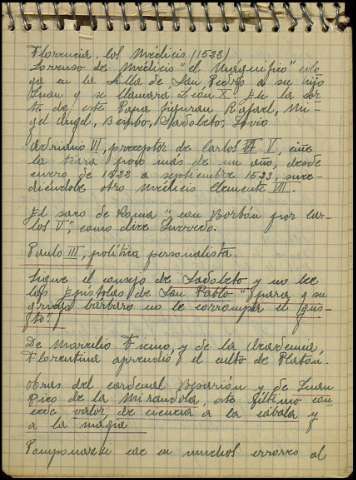 Florencia, los Médicis (1538)
Lorenzo de Médicis "el Magnífico" colo-
ca en la silla de San Pedro a su hijo
Juan y se llamará León X. En la cor-
te de este Papa figuran Rafael, Mi-
guel Angel, Bembo, Sadoleto, Jovio
Adriano VI, preceptor de Carlos V, ciñe
la tiara poco más de un año, desde
enero de 1522 a septiembre 1523, suce-
diéndole otro Médicis Clemente VII.
El saco de Roma "con Borbón por Car-
los V" como dice Quevedo.
Paulo III, política personalista.
Sigue el consejo de Sadoleto y no lee
las Epístolas de San Pablo "para q su
estilo bárbaro no le corrompa el gus-
to".
De Marsilio Ficino, y de la Academia
Florentina aprendió el culto de Platón.
Obras del cardenal Besarión y de Juan
Pico de la Mirandola, este último con-
cede valor de ciencia a la cábala y
a la magia
Pomponazzi cae en muchos errores al